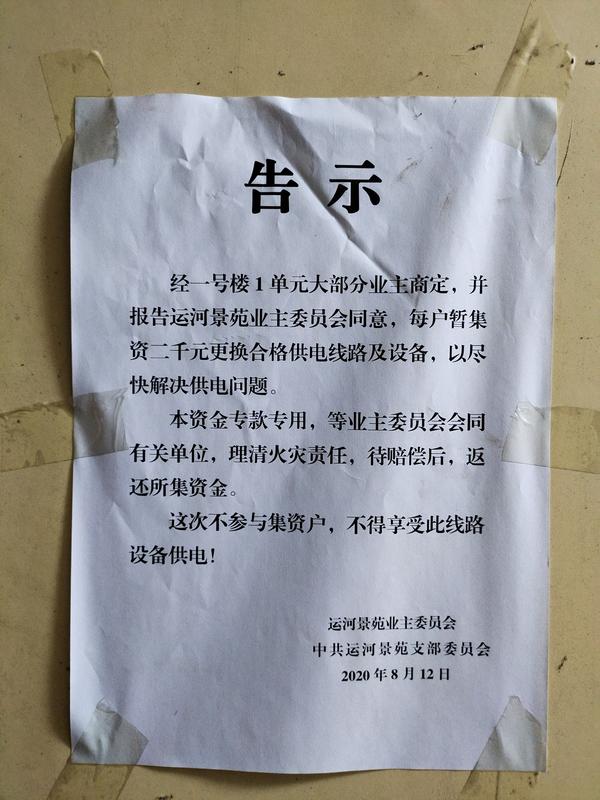 告示
经一号楼1单元大部分业主商定，并
报告运河景苑业主委员会同意，每户暂集
资二千元更换合格供电线路及设备，以尽
快解决供电问题。
本资金专款专用，等业主委员会会同
有关单位，理清火灾责任，待赔偿后，返
还所集资金。
这次不参与集资户，不得享受此线路
设备供电！
运河景苑业主委员会
中共运河景苑支部委员会
2020年8月12日